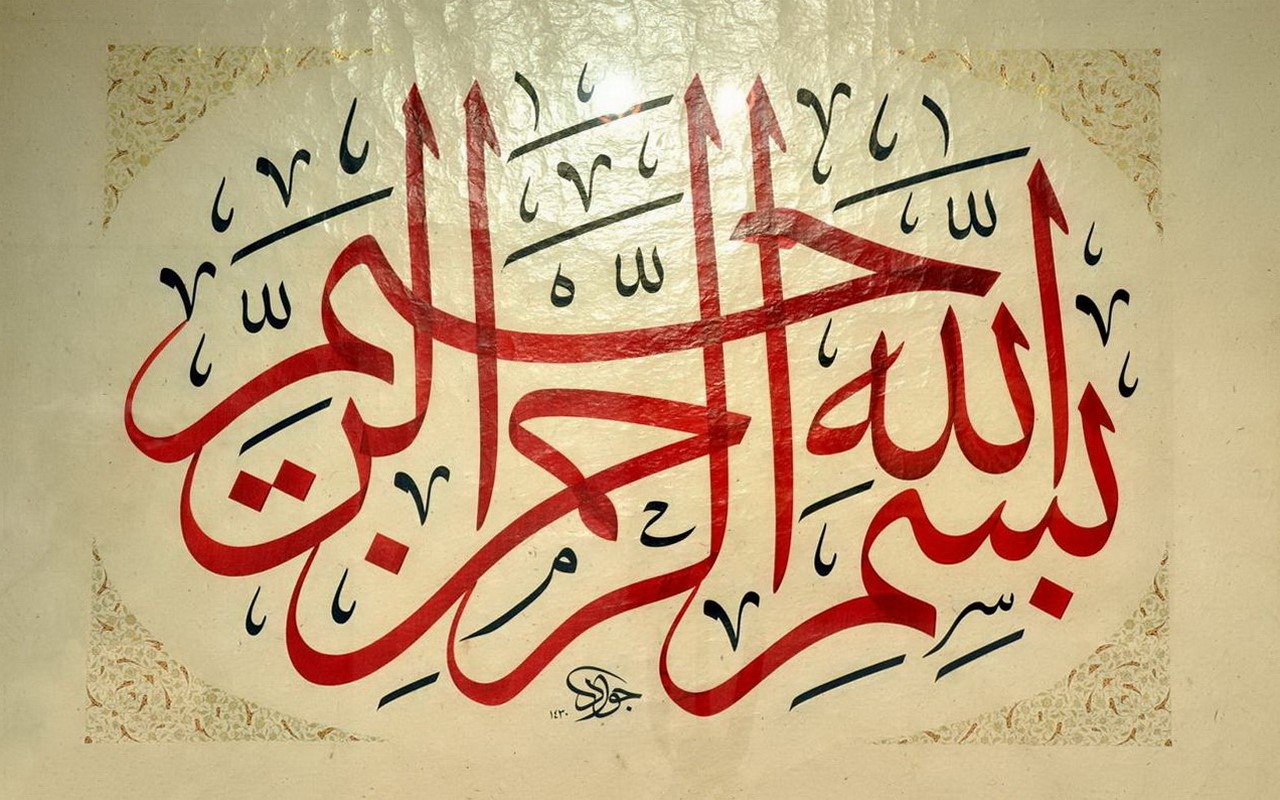 بسم الله الرحمن الرحيم
جواد
١٤٣٠